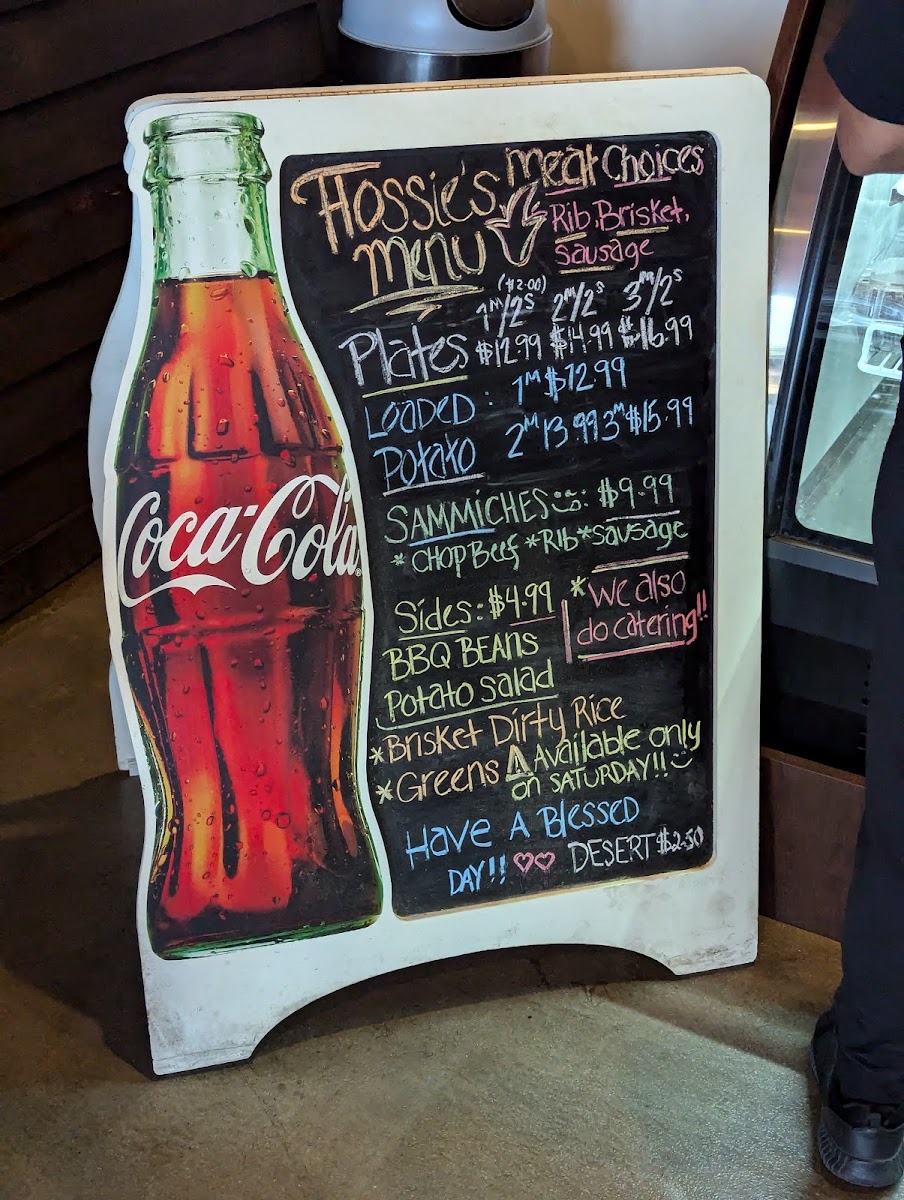 Hossie's
Menu
Meat Choices
Rib, Brisket,
Sausage
($2.00)
1M/2S 2M/2S 3M/2S
Plates $12.99 $14.99 $16.99
LOADED : 1M $12.99
Potato 2M 13.99 3M $15.99
SAMMiCHES: $9.99
*CHOP Beef *RIB *Sausage
Sides: $4.99
BBQ BEANS
Potato salad
*we also
do catering!!
*Brisket Dirty Rice
*Greens ⚠ Available only
on SATURDAY!!
Have A Blessed
DAY!! ♡♡
DESERT $2.50
Coca-Cola